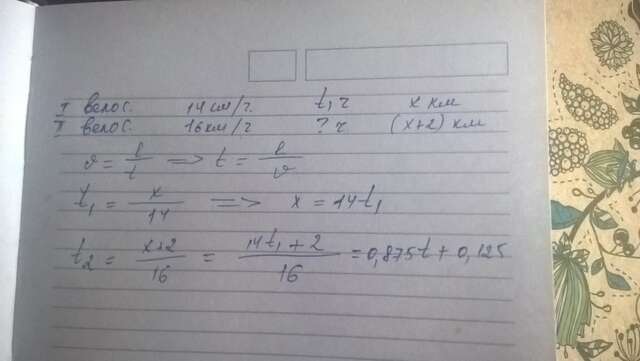 I велос 14 км/г t₁ г x км
II велос 16 км/г ? г (x+2) км
v = l/t => t = l/v
t₁ = x/14 => x = 14t₁
t₂ = x+2/16 = 14t₁+2/16 = 0,875t + 0,125